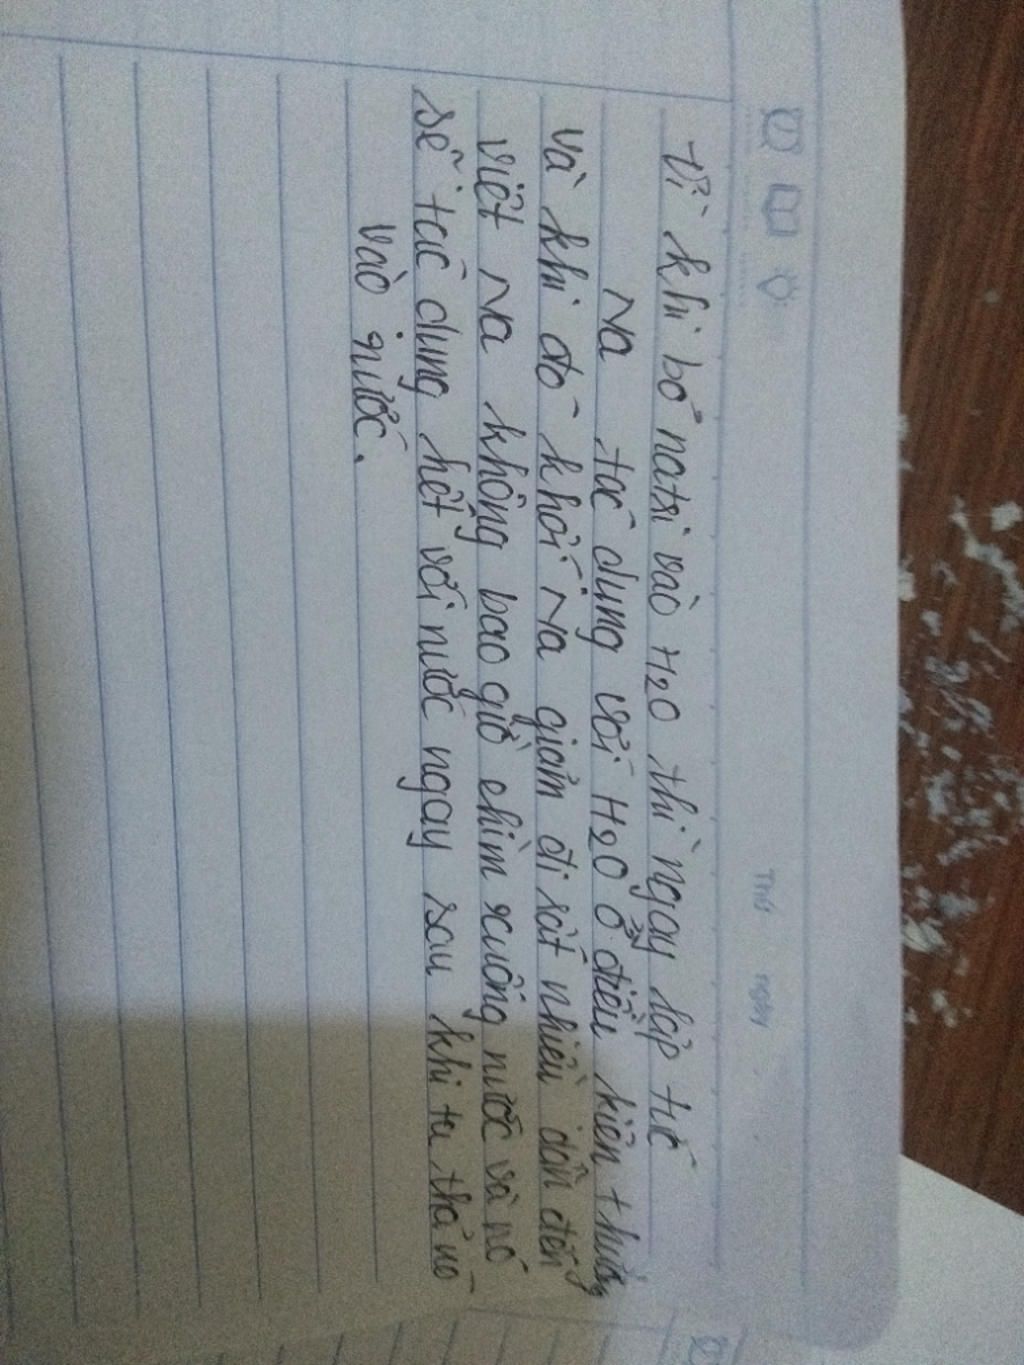 Thứ ngày
Vì khi bỏ natri vào H2O thì ngay lập tức
Na tác dụng với H2O ở điều kiện thường
và khi đó khối Na giảm đi rất nhiều dẫn đến
việt Na không bao giờ chìm xuống nước và nó
sẽ tác dụng hết với nước ngay sau khi ta thả nó
vào nước.